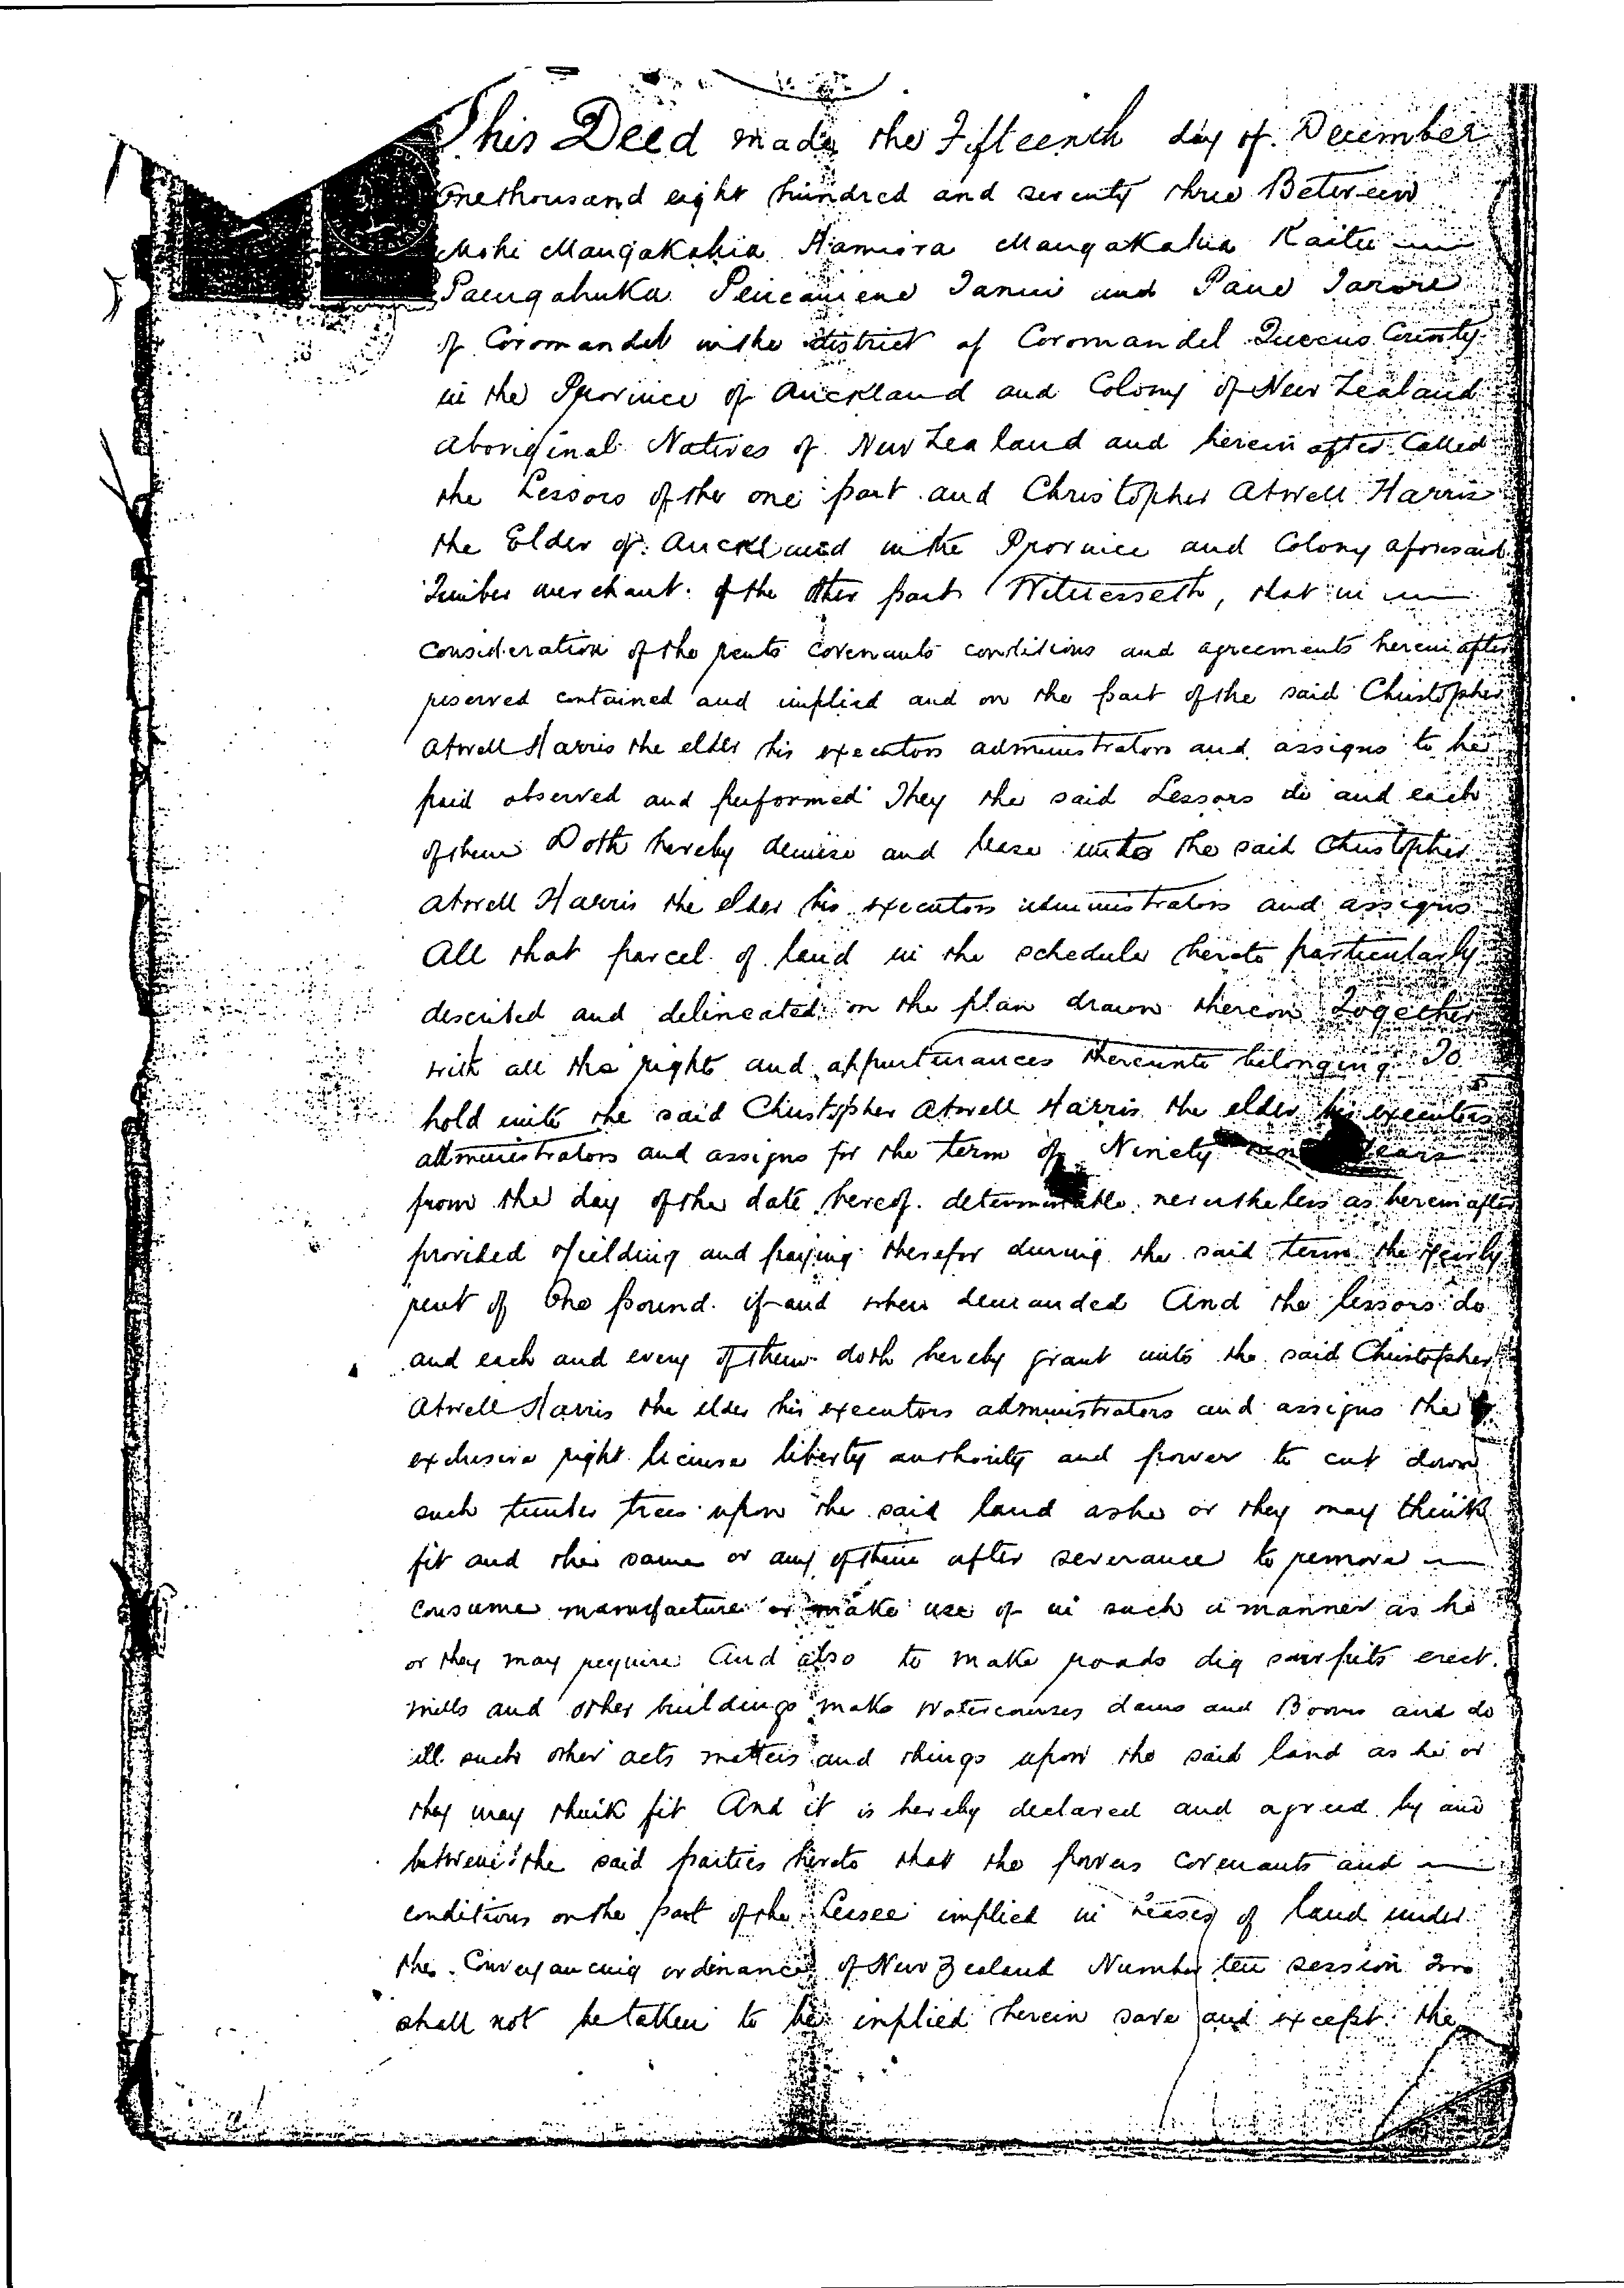 This Deed made the Fifteenth day of December
One thousand eight hundred and seventy three Between
Mohi Mangakahia Hamiora Mangakahia Kaitu
Paeugahuka and Pane Tarore
of Coromandel in the district of Coromandel Queens County
in the Province of Auckland and Colony of New Zealand
aboriginal Natives of New Zealand and herein after Called
the Lessors of the one part and Christopher Atwell Harris
the Elder of Auckland in the Province and Colony aforesaid
Timber merchant of the other part Witnesseth, that in
consideration of the rents covenants conditions and agreements herein after
reserved contained and implied and on the part of the said Christopher
Atwell Harris the elder his executors administrators and assigns to be
paid observed and performed They the said Lessors do and each
of them Doth hereby demise and lease unto the said Christopher
Atwell Harris the elder his executors administrators and assigns
All that parcel of land in the schedule hereto particularly
described and delineated on the plan drawn thereon Together
with all the rights and appurtenances thereunto belonging To
hold unto the said Christopher Atwell Harris the elder his executors
administrators and assigns for the term of Ninety nine years
from the day of the date hereof determinable nevertheless as herein after
provided Yielding and paying therefor during the said term the yearly
rent of One pound if and when demanded And the lessors do
and each and every of them doth hereby grant unto the said Christopher
Atwell Harris the elder his executors administrators and assigns the
exclusive right license liberty authority and power to cut down
such timber trees upon the said land as he or they may think
fit and the same or any of them after severance to remove
consume manufacture or make use of in such a manner as he
or they may require And also to make roads dig sawpits erect
mills and other buildings make watercourses dams and Booms and do
all such other acts matters and things upon the said land as he or
they may think fit And it is hereby declared and agreed by and
between the said parties hereto that the powers covenants and
conditions on the part of the Lessee implied in leases of land under
the Conveyancing ordinance of New Zealand Number ten session Two
shall not be taken to be implied herein save and except the